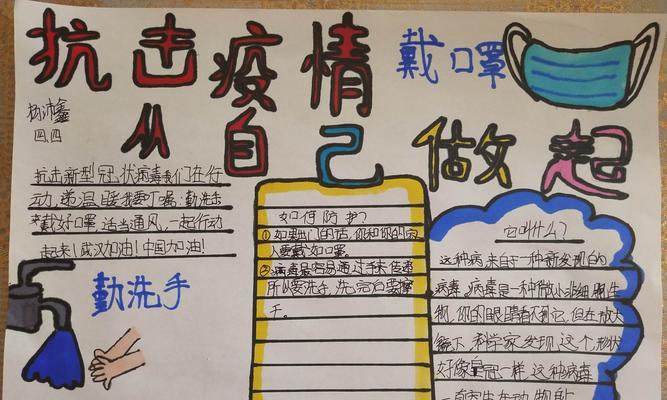 抗击疫情
戴口罩
从自己做起
杨沛鑫
四.四
抗击新型冠状病毒我们在行
动,
勤洗手
戴好口罩 适当通风,一起行动
起来!武汉加油!中国加油!
勤洗手
如何防护?
①如果出门的话,你和你的家
人要戴好口罩。
②病毒最容易通过手来传递
所以要洗手,洗完后要擦
手。
它叫什么?
这种病来自于一种新发现的
病毒。病毒是一种微小非细胞生
物,你的眼睛看不到它,但在放大
镜下,科学家发现,这个形状
好像皇冠一样,这种病毒